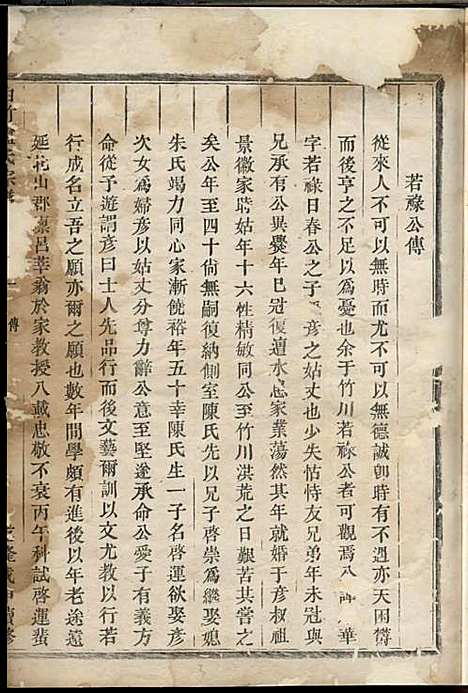 若祿公傳
從來人不可以無時而尤不可以無德誠卽時有不遇亦天困尊
而後亨之不足以爲憂也余于竹川若祿公者可觀焉八華
字若祿日春公之子彥之姑丈也少失怙恃友兄弟年未冠與
兄承有公異爨年巳冠復遭水患家業蕩然其年就婚于彥叔祖
景徽家時姑年十六性精敏同公至竹川淇荒之日艱苦共嘗之
矣公年至四十尙無嗣復納側室陳氏先以兄子啓崇爲繼娶媳
朱氏竭力同心家漸饒裕年五十幸陳氏生一子名啓運欲娶彥
次女爲婦彥以姑丈分尊力辭公意至堅遂承命公愛子有義方
命從予遊謂彥曰士人先品行而後文藝爾訓以文尤教以行若
行成名立吾之願亦爾之願也數年間學頗有進後以年老途遠
延花山郡廩邑莘翁於家教授八載忠敬不衰丙午科試啓運蜚
傳